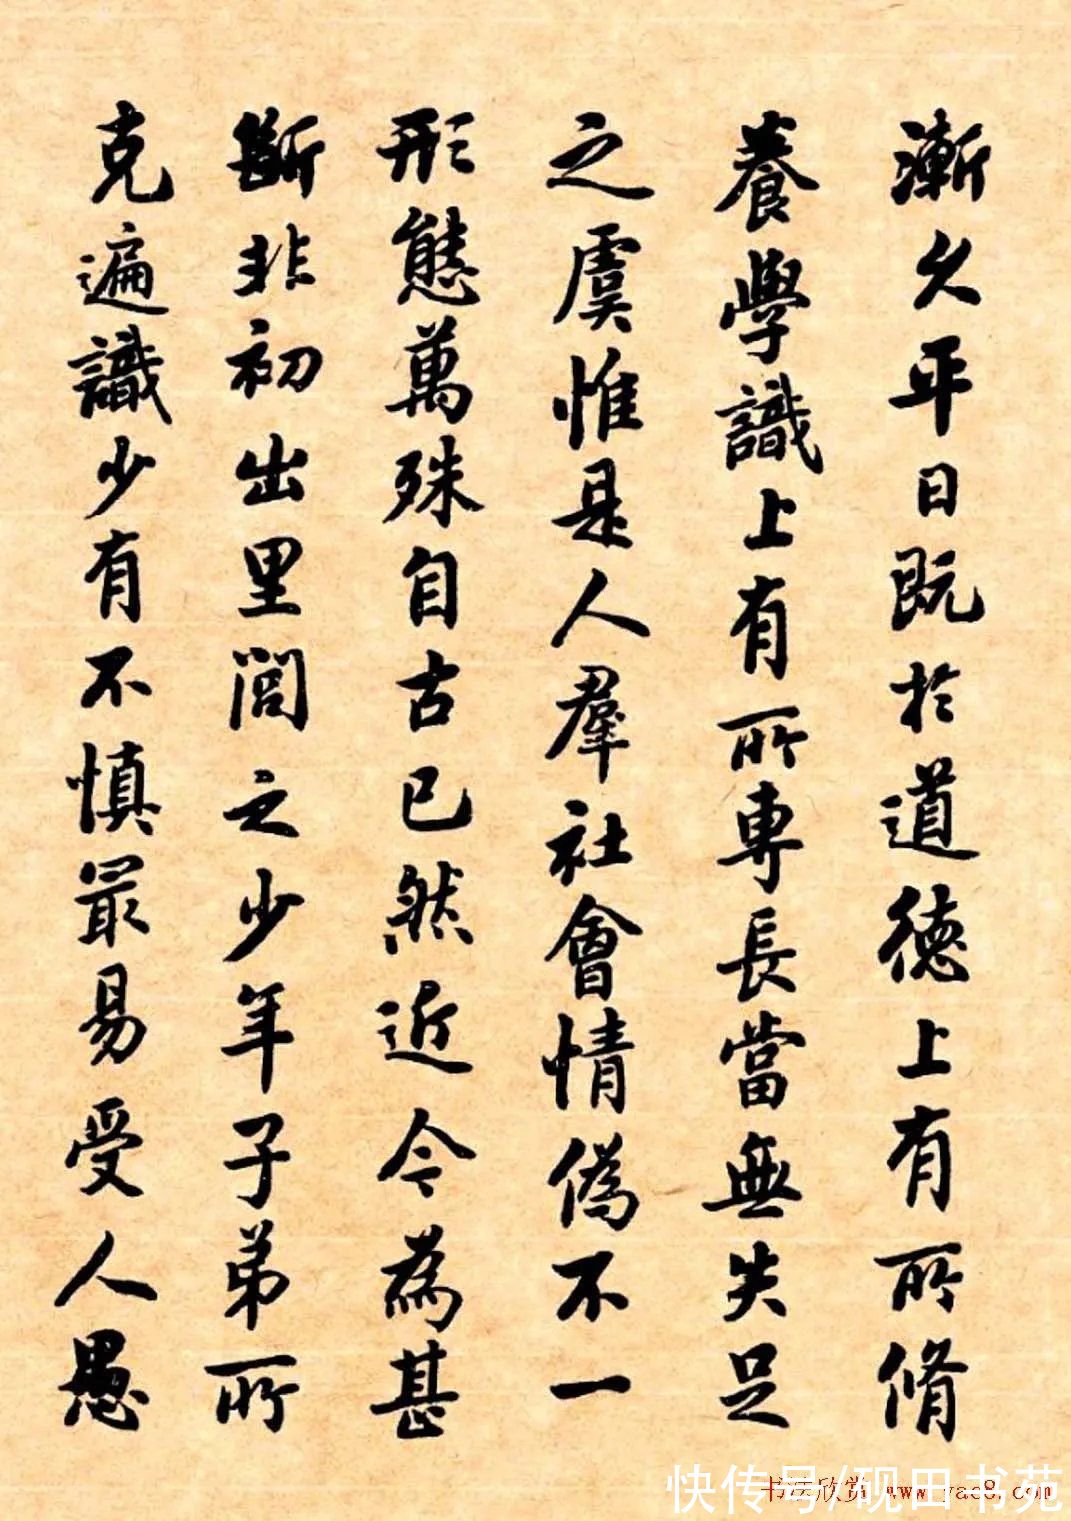 漸久平日既於道德上有所脩
養學識上有所專長當無失足
之虞惟是人羣社會情偽不一
形態萬殊自古已然近今為甚
斷非初出里閭之少年子弟所
克遍識少有不慎最易受人愚
快传号/砚田书苑
书法欣赏 www.yac8.com